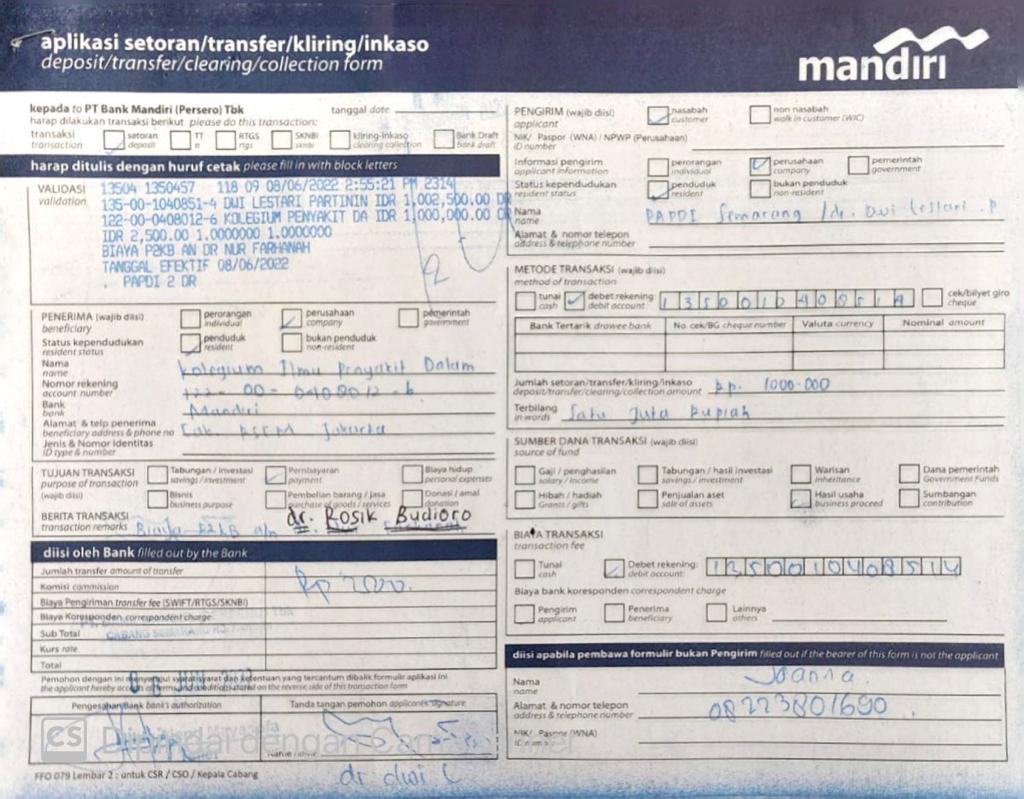 aplikasi setoran/transfer/kliring/inkaso
deposit/transfer/clearing/collection form
mandiri
kepada to PT Bank Mandiri (Persero) Tbk
tanggal date
harap dilakukan transaksi berikut please do this transaction:
transaksi transaction
setoran deposit
TT tt
RTGS rtgs
SKNBI sknbi
kliring-inkaso clearing collection
Bank Draft bank draft
harap ditulis dengan huruf cetak please fill in with block letters
VALIDASI validation
13504 1350457 118 09 08/06/2022 2:55:21 PM 2314
135-00-1040851-4 DWI LESTARI PARTININ IDR 1,002,500.00 DR
122-00-0408012-6 KOLEGIUM PENYAKIT DA IDR 1,000,000.00
IDR 2,500.00 1.0000000 1.0000000
BIAYA P2KB AN DR NUR FARHANAH
TANGGAL EFEKTIF 08/06/2022
. PAPDI 2 DR
PENERIMA (wajib diisi) beneficiary
perorangan individual
perusahaan company
pemerintah government
Status kependudukan resident status
penduduk resident
bukan penduduk non-resident
Nama name
Kolegium Ilmu Penyakit Dalam
Nomor rekening account number
122 - 00 - 0408012 - 6
Bank bank
Mandiri
Alamat & telp penerima beneficiary address & phone no
Cab. RSCM Jakarta
Jenis & Nomor Identitas ID type & number
TUJUAN TRANSAKSI purpose of transaction (wajib diisi)
Tabungan / investasi savings / investment
Pembayaran payment
Biaya hidup personal expenses
Bisnis business purpose
Pembelian barang / jasa purchase of goods / services
Donasi / amal donation
BERITA TRANSAKSI transaction remarks
Biaya P2KB a/n
dr. Rosik Budioro
diisi oleh Bank filled out by the Bank
Jumlah transfer amount of transfer
Komisi commission
Biaya Pengiriman transfer fee (SWIFT/RTGS/SKNBI)
Biaya Koresponden correspondent charge
Sub Total
Kurs rate
Total
Pemohon dengan ini
syarat dan ketentuan yang tercantum dibalik formulir aplikasi ini
the applicant hereby
stated on the reverse side of this transaction form
Pengesahan Bank bank's authorization
Tanda tangan pemohon applicant's signature
CS
FFO 079 Lembar 2 : untuk CSR / CSO / Kepala Cabang
PENGIRIM (wajib diisi) applicant
nasabah customer
non nasabah walk in customer (WIC)
NIK/ Paspor (WNA) / NPWP (Perusahaan)
ID number
Informasi pengirim applicant information
perorangan individual
perusahaan company
pemerintah government
Status kependudukan resident status
penduduk resident
bukan penduduk non-resident
Nama name
PAPDI Semarang /dr. Dwi Lestari. P
Alamat & nomor telepon address & telephone number
METODE TRANSAKSI (wajib diisi)
method of transaction
tunai cash
debet rekening: debit account:
cek/bilyet giro cheque
Bank Tertarik drawee bank
No. cek/BG cheque number
Valuta currency
Nominal amount
Jumlah setoran/transfer/kliring/inkaso
deposit/transfer/clearing/collection amount
Rp. 1000.000
Terbilang in words
Satu Juta Rupiah
SUMBER DANA TRANSAKSI (wajib diisi)
source of fund
Gaji / penghasilan salary / income
Tabungan / hasil investasi savings / investment
Warisan inheritance
Dana pemerintah Government Funds
Hibah / hadiah Grants / gifts
Penjualan aset sale of assets
Hasil usaha business proceed
Sumbangan contribution
BIAYA TRANSAKSI
transaction fee
Tunai cash
Debet rekening: debit account:
Biaya bank koresponden correspondent charge
Pengirim applicant
Penerima beneficiary
Lainnya others
diisi apabila pembawa formulir bukan Pengirim filled out if the bearer of this form is not the applicant
Nama name
Joanna.
Alamat & nomor telepon address & telephone number
08223801690
NIK/ Paspor (WNA)